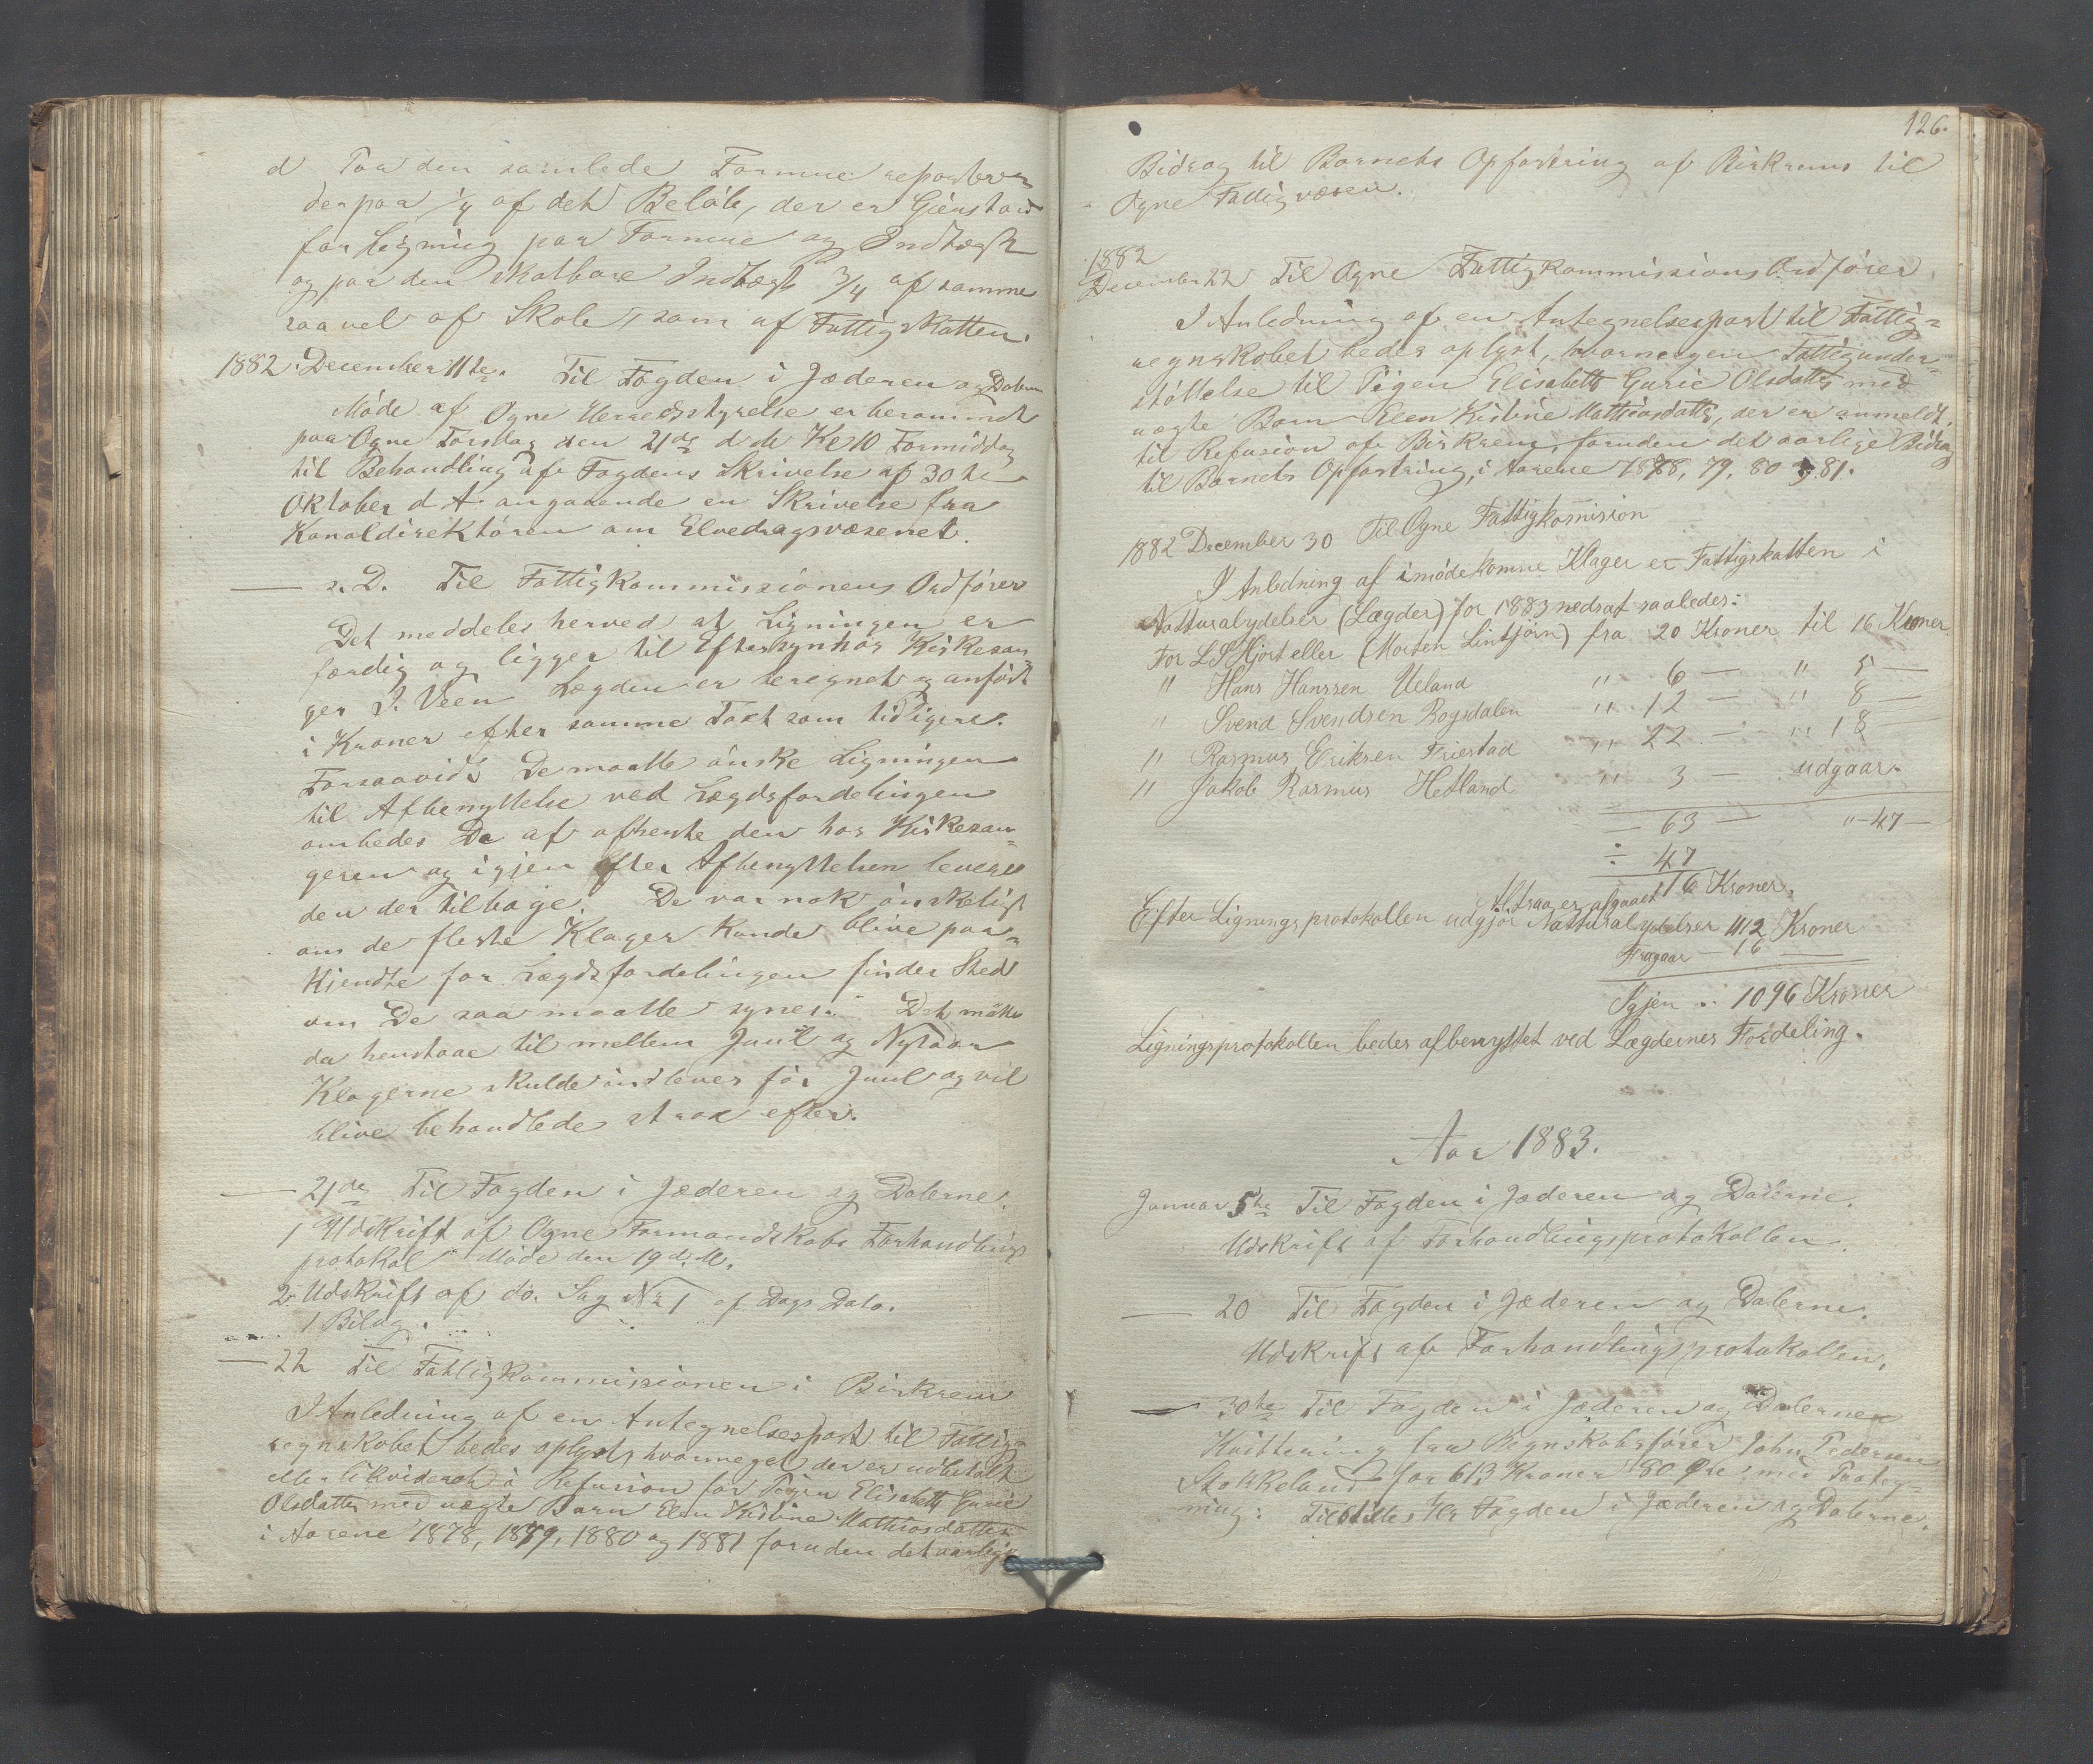 d Paa den samlede Formue reparteres
derpaa 1/4 af det Beløb, der er Gjenstand
for Ligning paa Formue og Indtægt
og paa den skatbare Indtægt 3/4 af samme
saavel af Skole, som af Fattigskatten.
1882. December 11te. Til Fogden i Jæderen og Dalerne
Møde af Ogne Herredsstyrelse er berammet
paa Ogne Torsdag den 21de d M Kl 10 Formiddag
til Behandling af Fogdens Skrivelse af 30te
Oktober d A. angaaende en Skrivelse fra
Kanaldirektøren om Elvedragsvæsenet.
— s. D. Til Fattigkommissionens Ordfører
Det meddeles herved at Ligningen er
færdig og ligger til Eftersyn hos Kirkesan-
ger J. Veen Lægden er beregnet og anført
i Kroner efter samme Taxt som tidligere.
Forsaavidt De maatte ønske Ligningen
til Afbenyttelse ved Lægdsfordelingen
ombedes De af afhente den hos Kirkesan-
geren og igjen efter Afbenyttelsen levere
den der tilbage. De var nok ønskeligt
om de fleste Klager kunde blive paa-
kjendte før Lægdsfordelingen finder Sted
om De saa maatte synes. Det måtte
da henstaae til mellem Juul og Nytaar
Klagerne skulde indleveres før Juul og vil
blive behandlede strax efter.
— 21de Til Fogden i Jæderen og Dalerne.
1 Udskrift af Ogne Formandskabs Forhandlings
protokol Møde den 19 d. M.
2 Udskrift af do. Sag No 1 af Dags Dato.
1 Bilag.
— 22 Til Fattigkommissionen i Birkrem
I Anledning af en Antegnelsespost til Fattig-
regnskabet bedes oplyst, hvormeget der er udbetalt
eller likvideret i Refusion for Pigen Elisabeth Gurie
Olsdatter med uægte Barn Elen Kistine Mathiasdatter
i Aarene 1878, 1879, 1880 og 1881 foruden det aarlige
126.
Bidrag til Barnets Opfostring af Birkrems til
Ogne Fattigvæsen.
1882
December 22 Til Ogne Fattigkommissions Ordfører
I Anledning af en Antegnelsespost til Fattig-
regnskabet bedes oplyst, hvormegen Fattigunder-
støttelse til Pigen Elisabeth Gurie Olsdatter med
uægte Barn Elen Kistine Mathiasdatter, der er anmeldt
til Refusion af Birkrem, foruden det aarlige Bidrag
til Barnets Opfostring, i Aarene 1878, 79, 80 og 81.
1882 December 30 Til Ogne Fattigkomision
I Anledning af imødekomne Klager er Fattigskatten i
Natturalydelser (Lægder) for 1883 nedsat saaledes:
For L S Hjort eller (Morten Lintjørn) fra 20 Kroner til 16 Kroner
" Hans Hanssen Ueland " 6 — " 5 —
" Svend Svendsen Bogsdalen " 12 — " 8 —
" Rasmus Eriksen Friestad " 22 — " 18
" Jakob Rasmus Hetland " 3 — udgaar.
— 63 — " — 47 —
÷ 47
Altsaa er afgaaet 16 Kroner.
Efter Ligningsprotokollen udgjør Natturalydelser 1112 Kroner
Fragaar — 16 —
Igjen .. 1096 Kroner
Ligningsprotokollen bedes afbenyttet ved Lægdernes Fordeling.
Aar 1883.
Januar 5te Til Fogden i Jæderen og Dalerne.
Udskrift af Forhandlingsprotokollen.
— 20 Til Fogden i Jæderen og Dalerne.
Udskrift af Forhandlingsprotokollen.
— 30te Til Fogden i Jæderen og Dalerne
Kvittering fra Regnskabsfører John Pedersen
Stokkeland for 613 Kroner 80 Øre med Paateg-
ning: Tilstilles Hr Fogden i Jæderen og Dalerne.